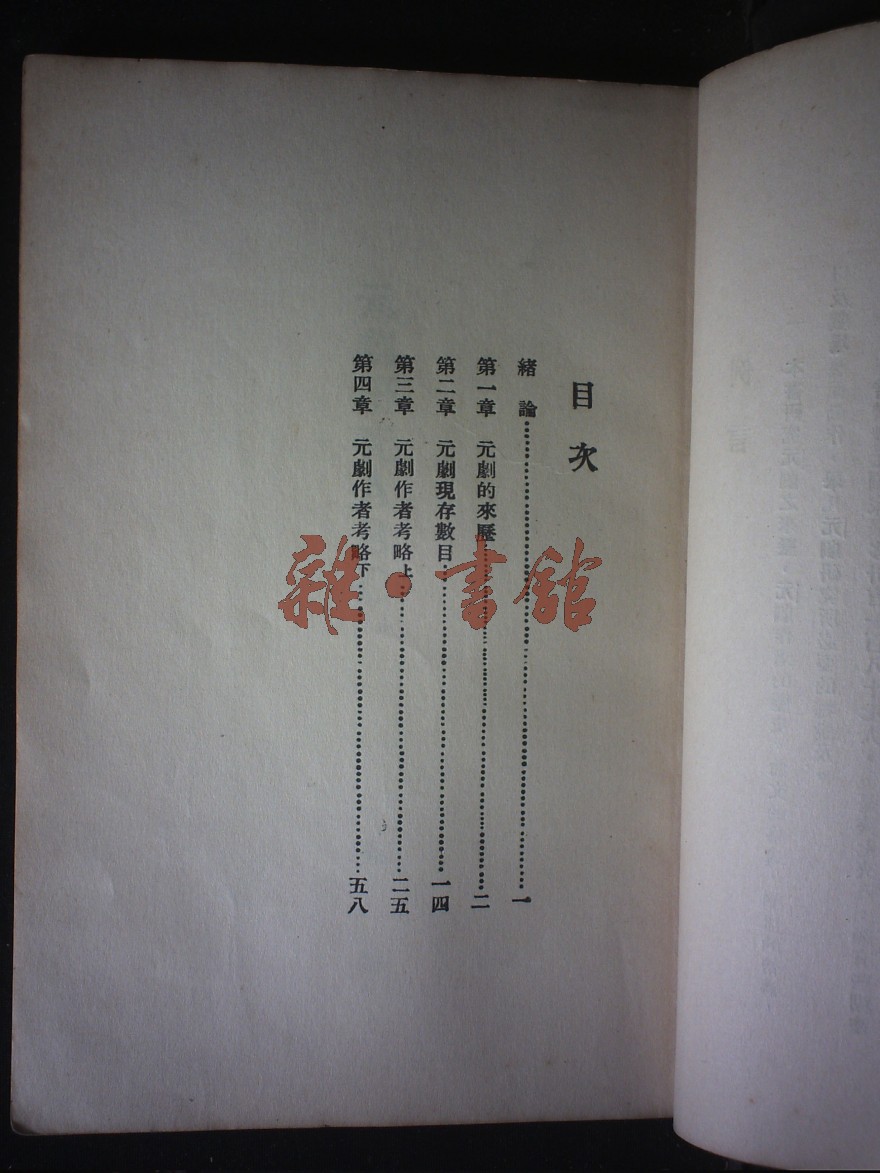 目次
緒論……一
第一章 元劇的來歷……二
第二章 元劇現存數目……一四
第三章 元劇作者考略上……二五
第四章 元劇作者考略下……五八
雜·書館